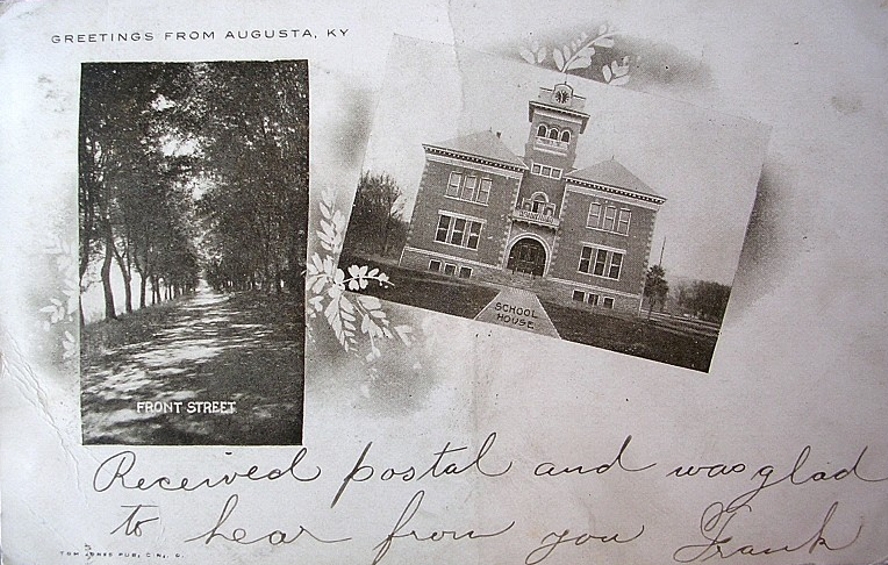 GREETINGS FROM AUGUSTA, KY
SCHOOL
HOUSE
FRONT STREET
Received postal and was glad
to hear from you Frank
TOM JONES PUB, CIN, O.